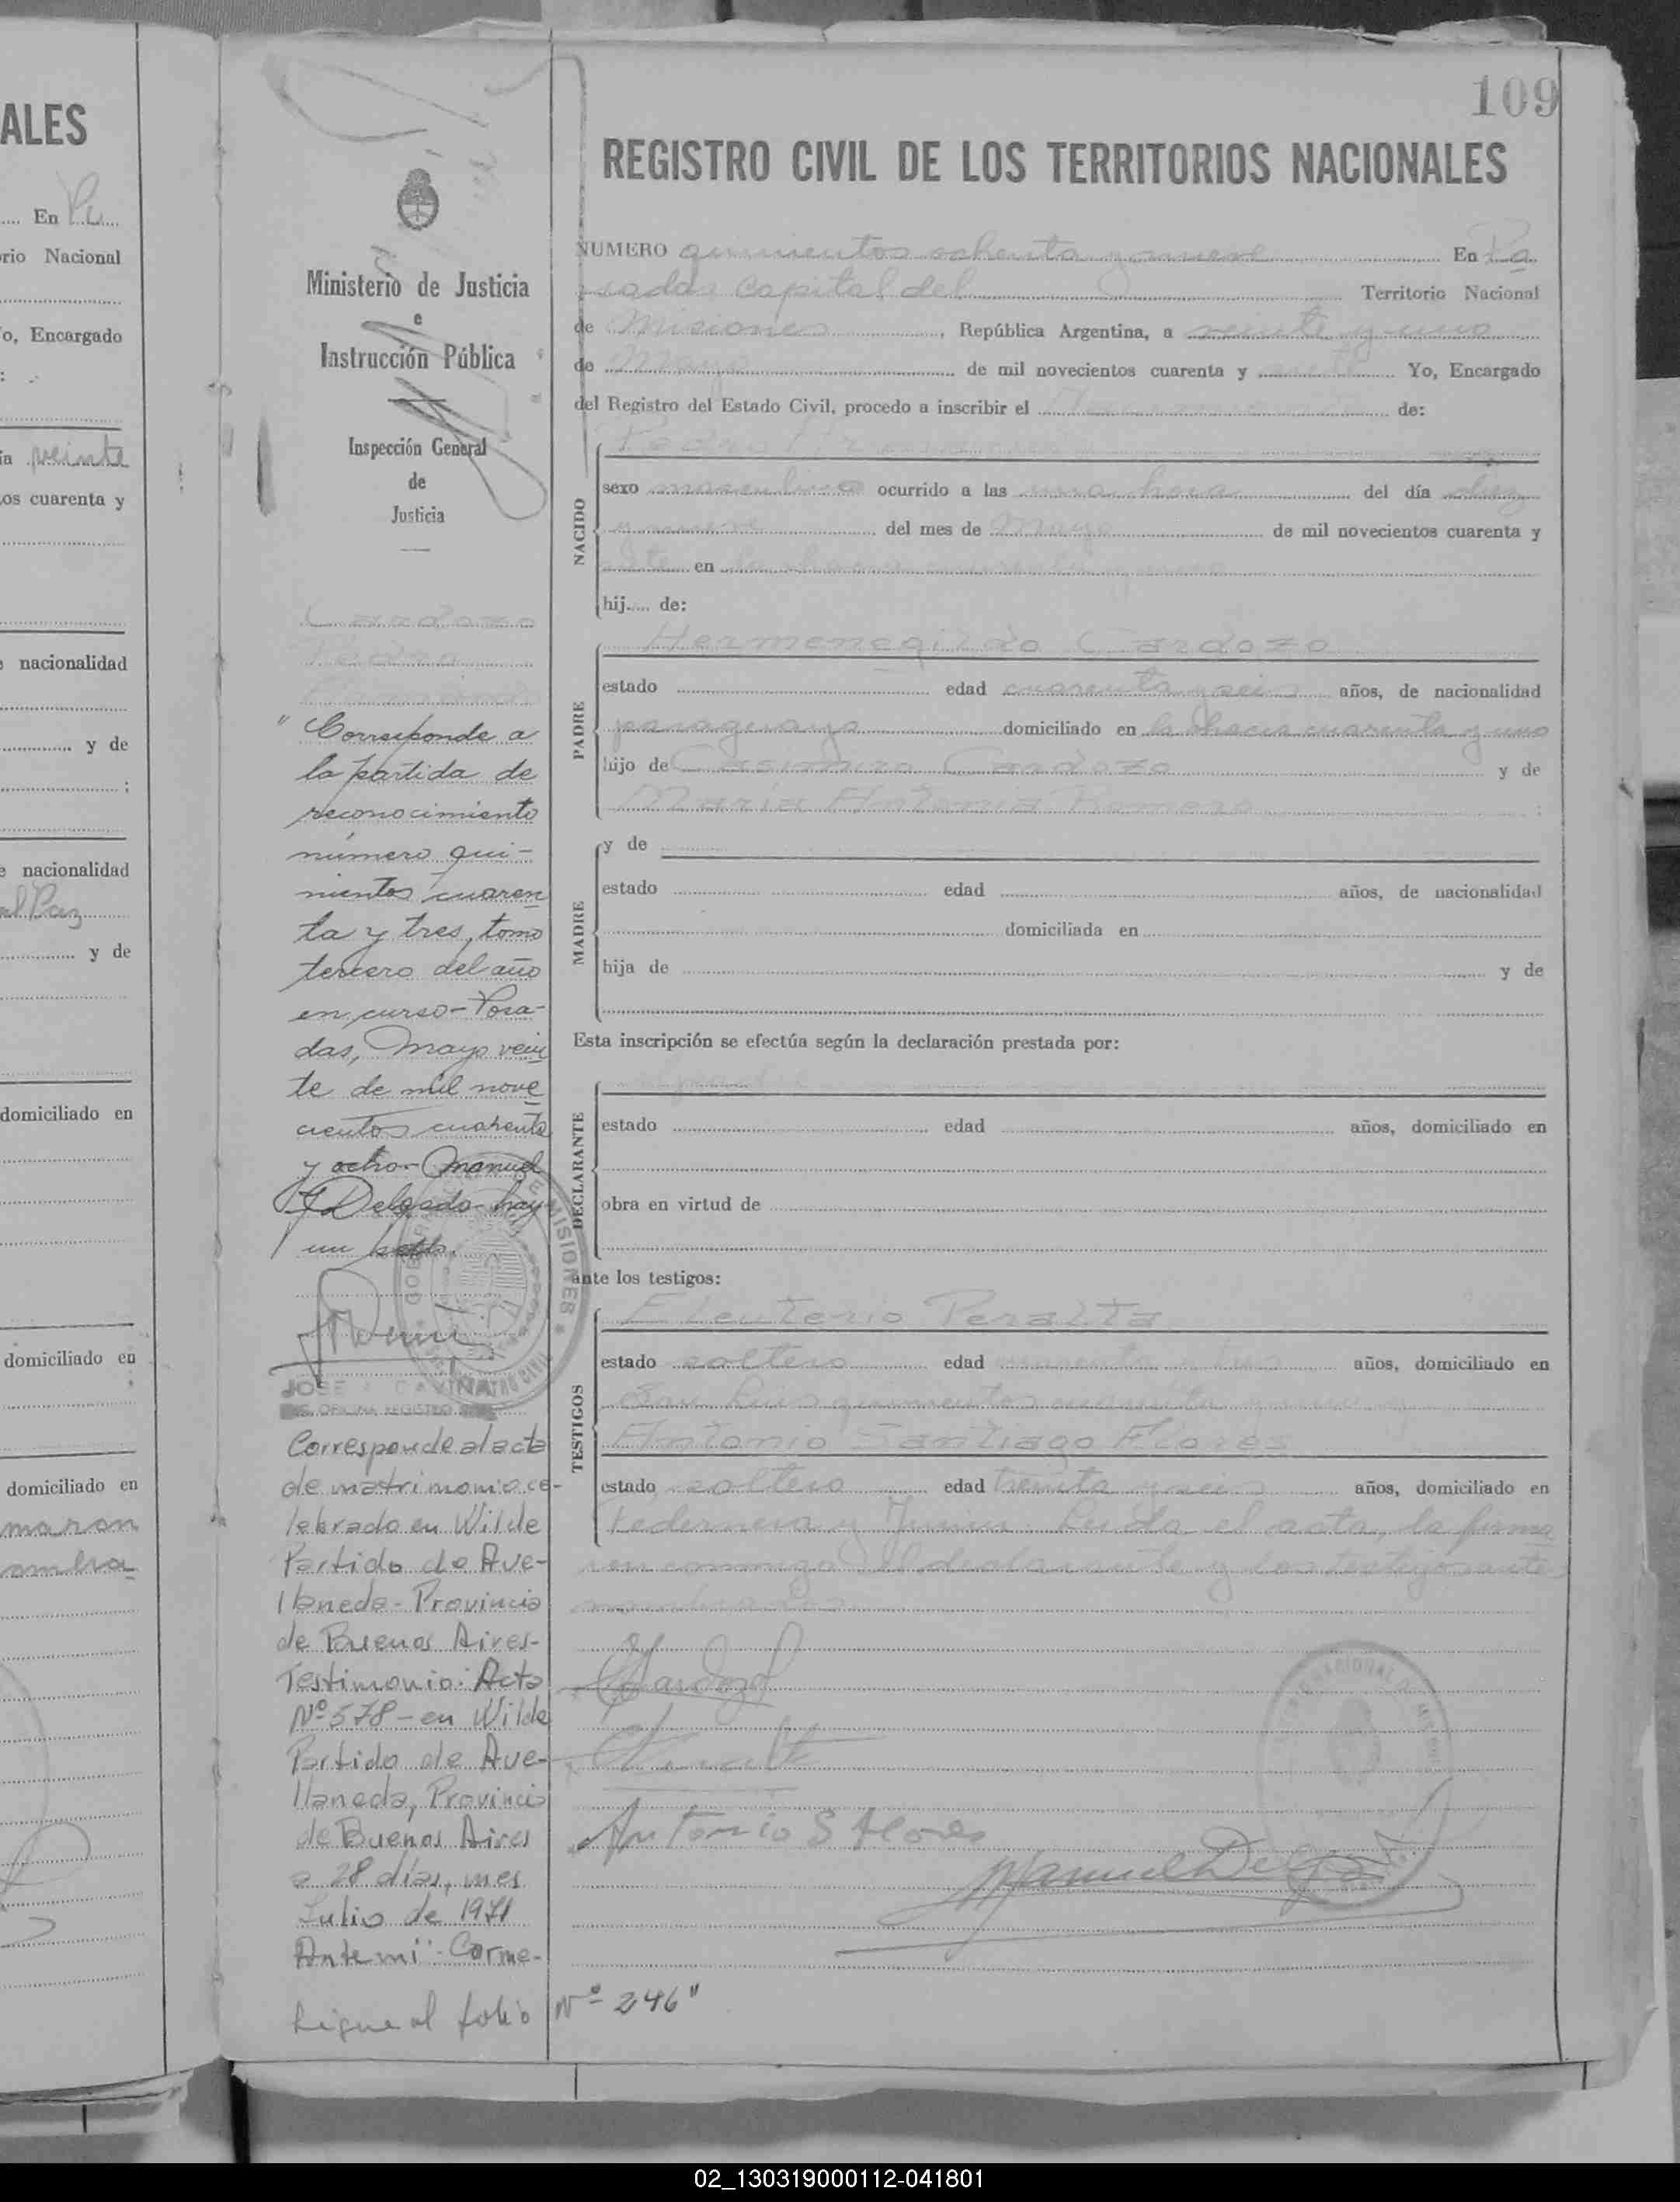 ALES
En Pu
rio Nacional
o, Encargado
veinte
os cuarenta y
nacionalidad
y de
nacionalidad
al Paz
y de
domiciliado en
domiciliado en
domiciliado en
maron
ombra
109
REGISTRO CIVIL DE LOS TERRITORIOS NACIONALES
Ministerio de Justicia
e
Instrucción Pública
Inspección General
de
Justicia
Cardozo
Pedro
"Corresponde a
la partida de
reconocimiento
número qui-
nientos cuaren
ta y tres, tomo
tercero del año
en curso - Posa-
das, Mayo vein
te de mil nove
cientos cuarenta
y ocho - Manuel
Delgado - hay
un sello.
JOSE CAVINA
OFICINA REGISTRO
Corresponde al acta
de matrimonio ce-
lebrado en Wilde
Partido de Ave-
llaneda - Provincia
de Buenos Aires-
Testimonio: Acta
Nº 578 - en Wilde
Partido de Ave-
llaneda, Provincia
de Buenos Aires
a 28 días, mes
Julio de 1971
Ante mí: Carme-
Sigue al folio Nº 246"
NUMERO quinientos ochenta y nueve En Po
sadas Capital del Territorio Nacional
de Misiones, República Argentina, a veinte y uno
de Mayo de mil novecientos cuarenta y Yo, Encargado
del Registro del Estado Civil, procedo a inscribir el de:
NACIDO
Pedro
sexo masculino ocurrido a las una hora del día diez
y nueve del mes de Mayo de mil novecientos cuarenta y
en
hij de:
PADRE
Hermenegildo Cardozo
estado edad cuarenta y seis años, de nacionalidad
paraguaya domiciliado en la chacra cuarenta y uno
hijo de Casimiro Cardozo y de
Maria Antonia Romero
MADRE
y de
estado edad años, de nacionalidad
domiciliada en
hija de y de
Esta inscripción se efectúa según la declaración prestada por:
DECLARANTE
estado edad años, domiciliado en
obra en virtud de
ante los testigos:
TESTIGOS
Eleuterio Peralta
estado soltero edad años, domiciliado en
San Luis quinientos cuarenta y
Antonio Santiago Flores
estado soltero edad treinta y seis años, domiciliado en
Pedernera y Junin. Leída el acta, la firma
ron conmigo el declarante y los testigos ante
nombrados
Cardozo
Antonio S Flores
Manuel Delgado
02_130319000112-041801